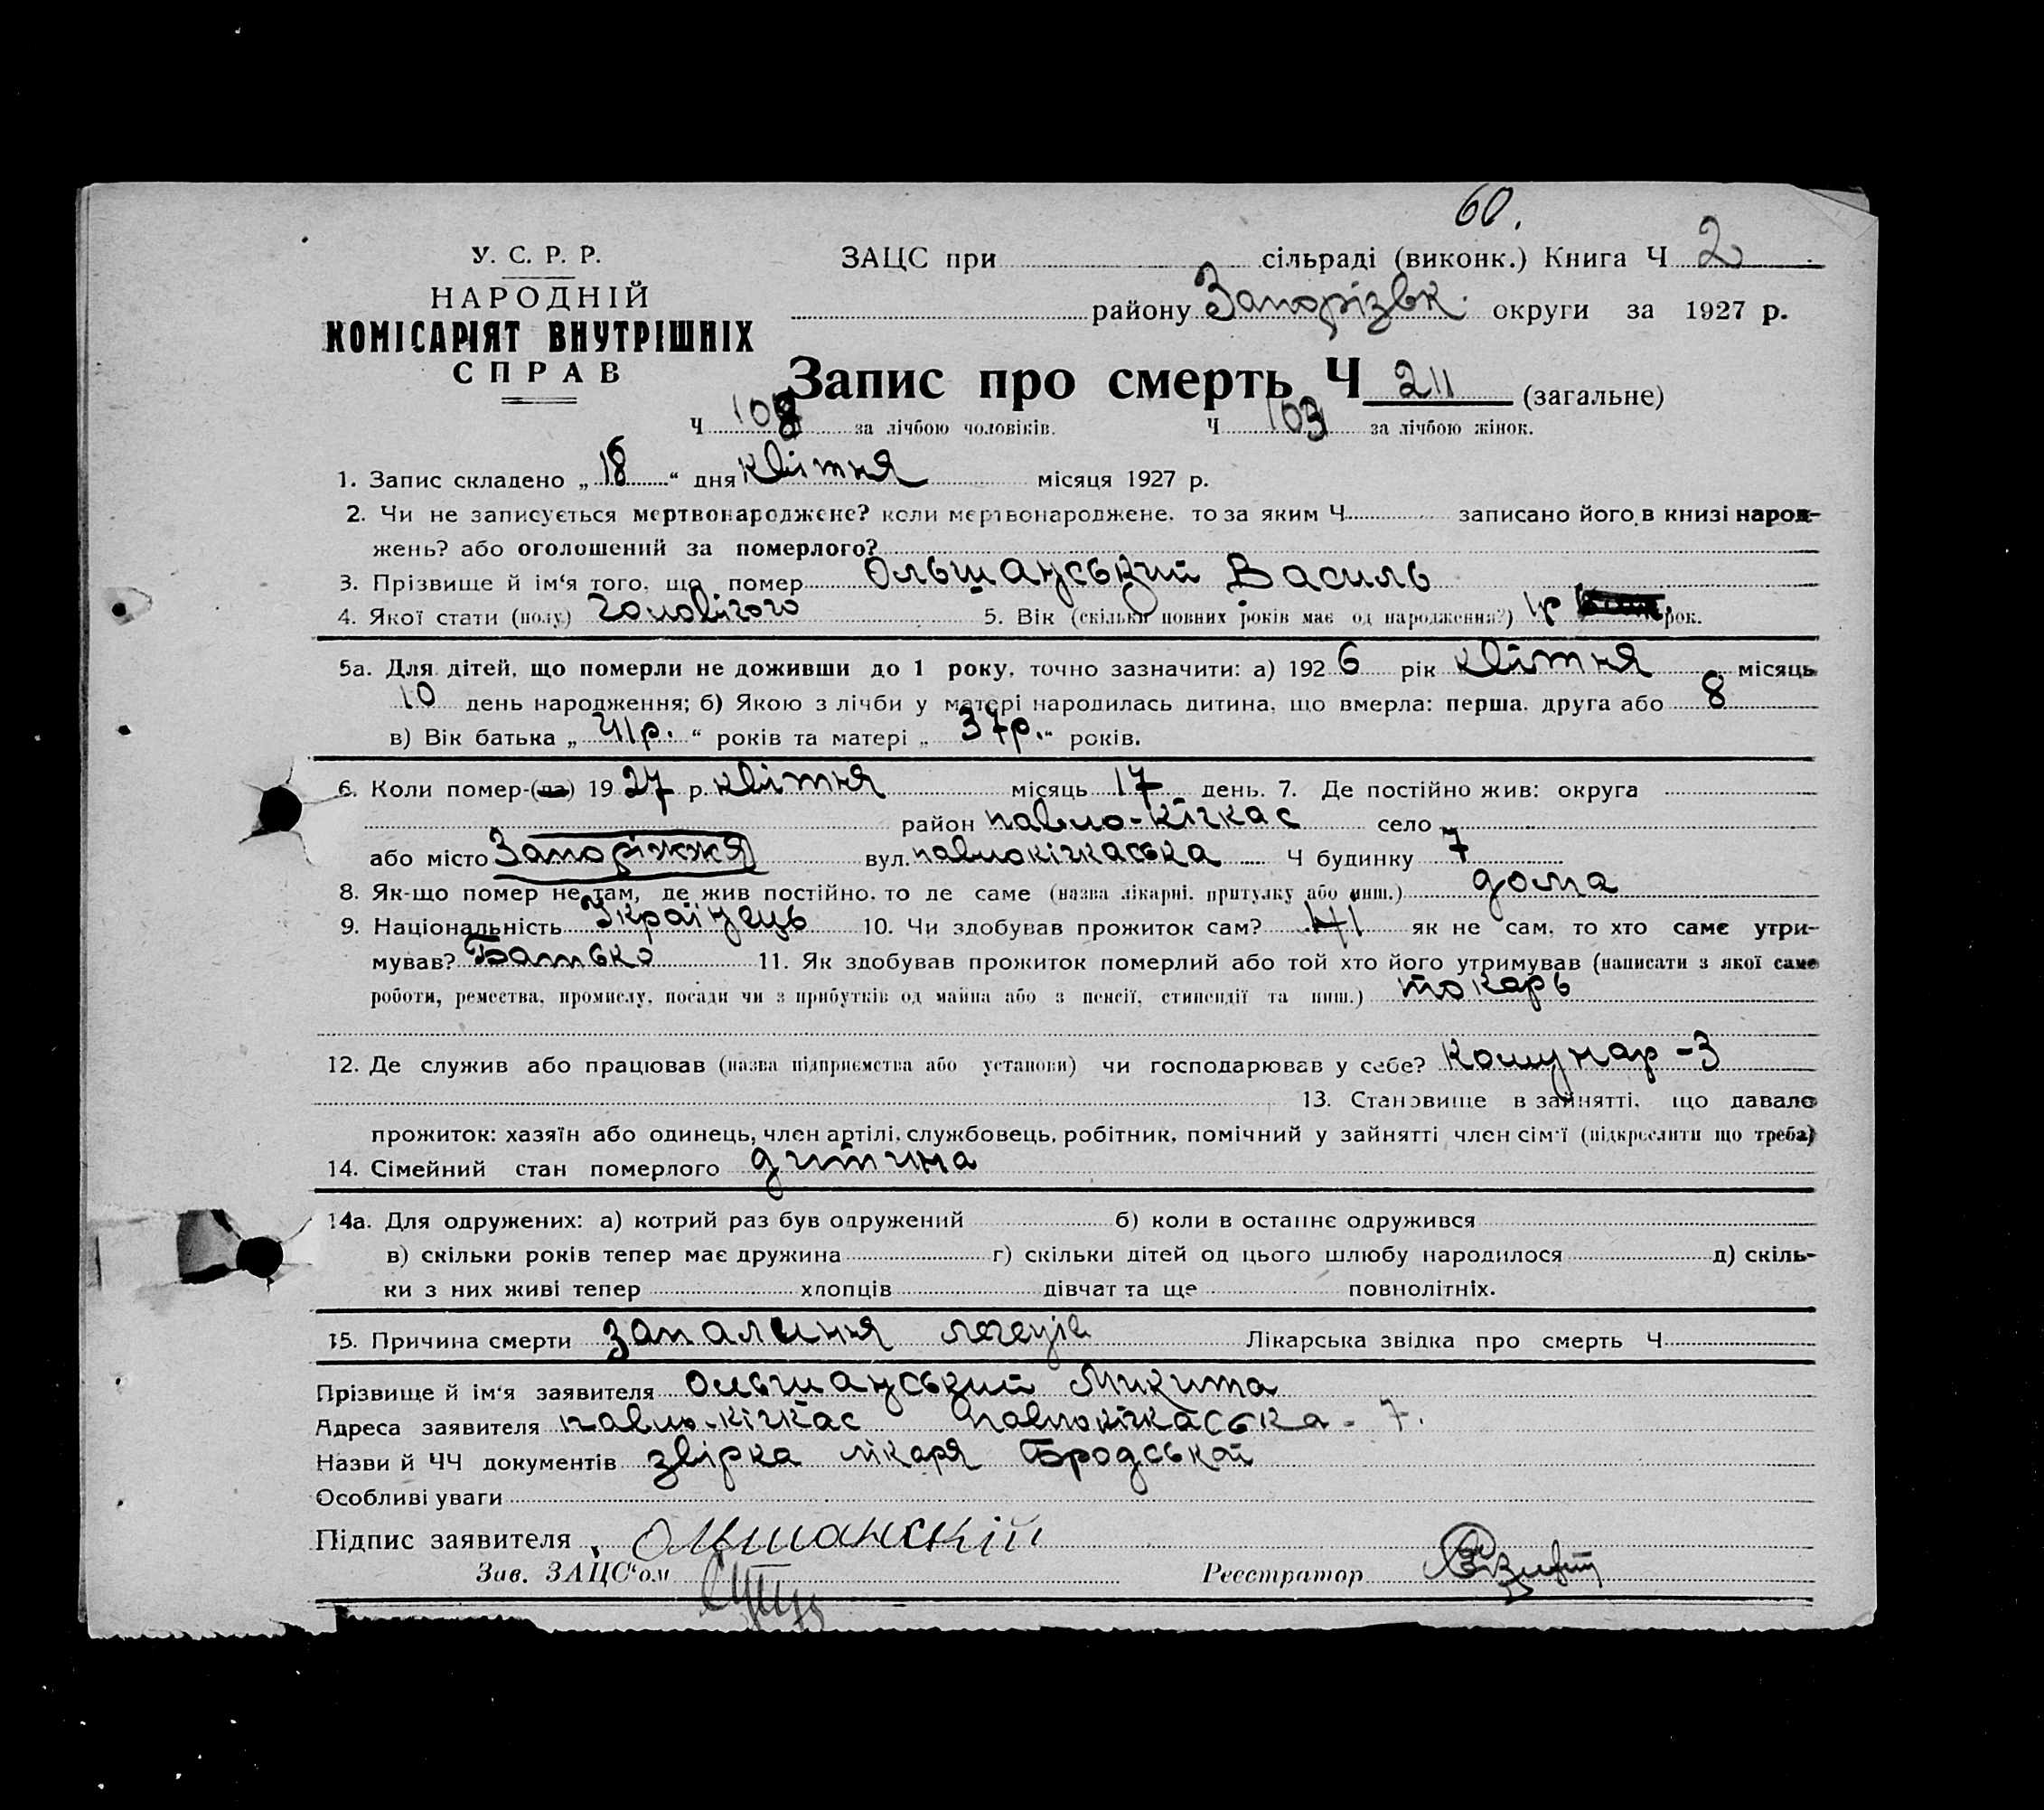 60.
У. С. Р. Р.
НАРОДНІЙ
КОМІСАРІЯТ ВНУТРІШНІХ
СПРАВ
ЗАЦС при сільраді (виконк.) Книга Ч 2
району Запорізьк. округи за 1927 р.
Запис про смерть Ч 211 (загальне)
Ч 108 за лічбою чоловіків. Ч 103 за лічбою жінок.
1. Запис складено „18“ дня квітня місяця 1927 р.
2. Чи не записується мертвонароджене? коли мертвонароджене, то за яким Ч записано його в книзі народ-
жень? або оголошений за померлого?
3. Прізвище й ім‘я того, що помер Ольшануський Василь
4. Якої стати (полу) чоловічого 5. Вік (скільки повних років має од народження?) 1р рок.
5а. Для дітей, що померли не доживши до 1 року, точно зазначити: а) 1926 рік квітня місяць
10 день народження; б) Якою з лічби у матері народилась дитина, що вмерла: перша, друга або 8
в) Вік батька „41р.“ років та матері „37р.“ років.
6. Коли помер-(ла) 1927 р. квітня місяць 17 день. 7. Де постійно жив: округа
район павло-кічкас село
або місто Запоріжжя вул. павлокічкаська Ч будинку 7
8. Як-що помер не там, де жив постійно, то де саме (назва лікарні, притулку або инш.) дома
9. Національність Українець 10. Чи здобував прожиток сам? ні як не сам, то хто саме утри-
мував? Батько 11. Як здобував прожиток померлий або той хто його утримував (написати з якої саме
роботи, ремества, промислу, посади чи з прибутків од майна або з пенсії, стипендії та инш.) токарь
12. Де служив або працював (назва підприємства або установи) чи господарював у себе? Комунар-3
13. Становище в зайнятті, що давало
прожиток: хазяїн або одинець, член артілі, службовець, робітник, помічний у зайнятті член сім‘ї (підкреслити що треба)
14. Сімейний стан померлого дитина
14а. Для одружених: а) котрий раз був одружений б) коли в останнє одружився
в) скільки років тепер має дружина г) скільки дітей од цього шлюбу народилося д) скіль-
ки з них живі тепер хлопців дівчат та ще повнолітніх.
15. Причина смерти запалення легенів Лікарська звідка про смерть Ч
Прізвище й ім‘я заявителя Ольшануський Микита
Адреса заявителя павло-кічкас павлокічкаська - 7.
Назви й ЧЧ документів звірка лікаря Бродської
Особливі уваги
Підпис заявителя Ольшанскій
Зав. ЗАЦС‘ом
Реєстратор